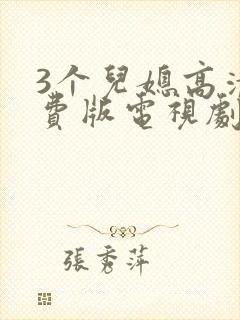 3个兒媳高
費版電視劇
張秀萍